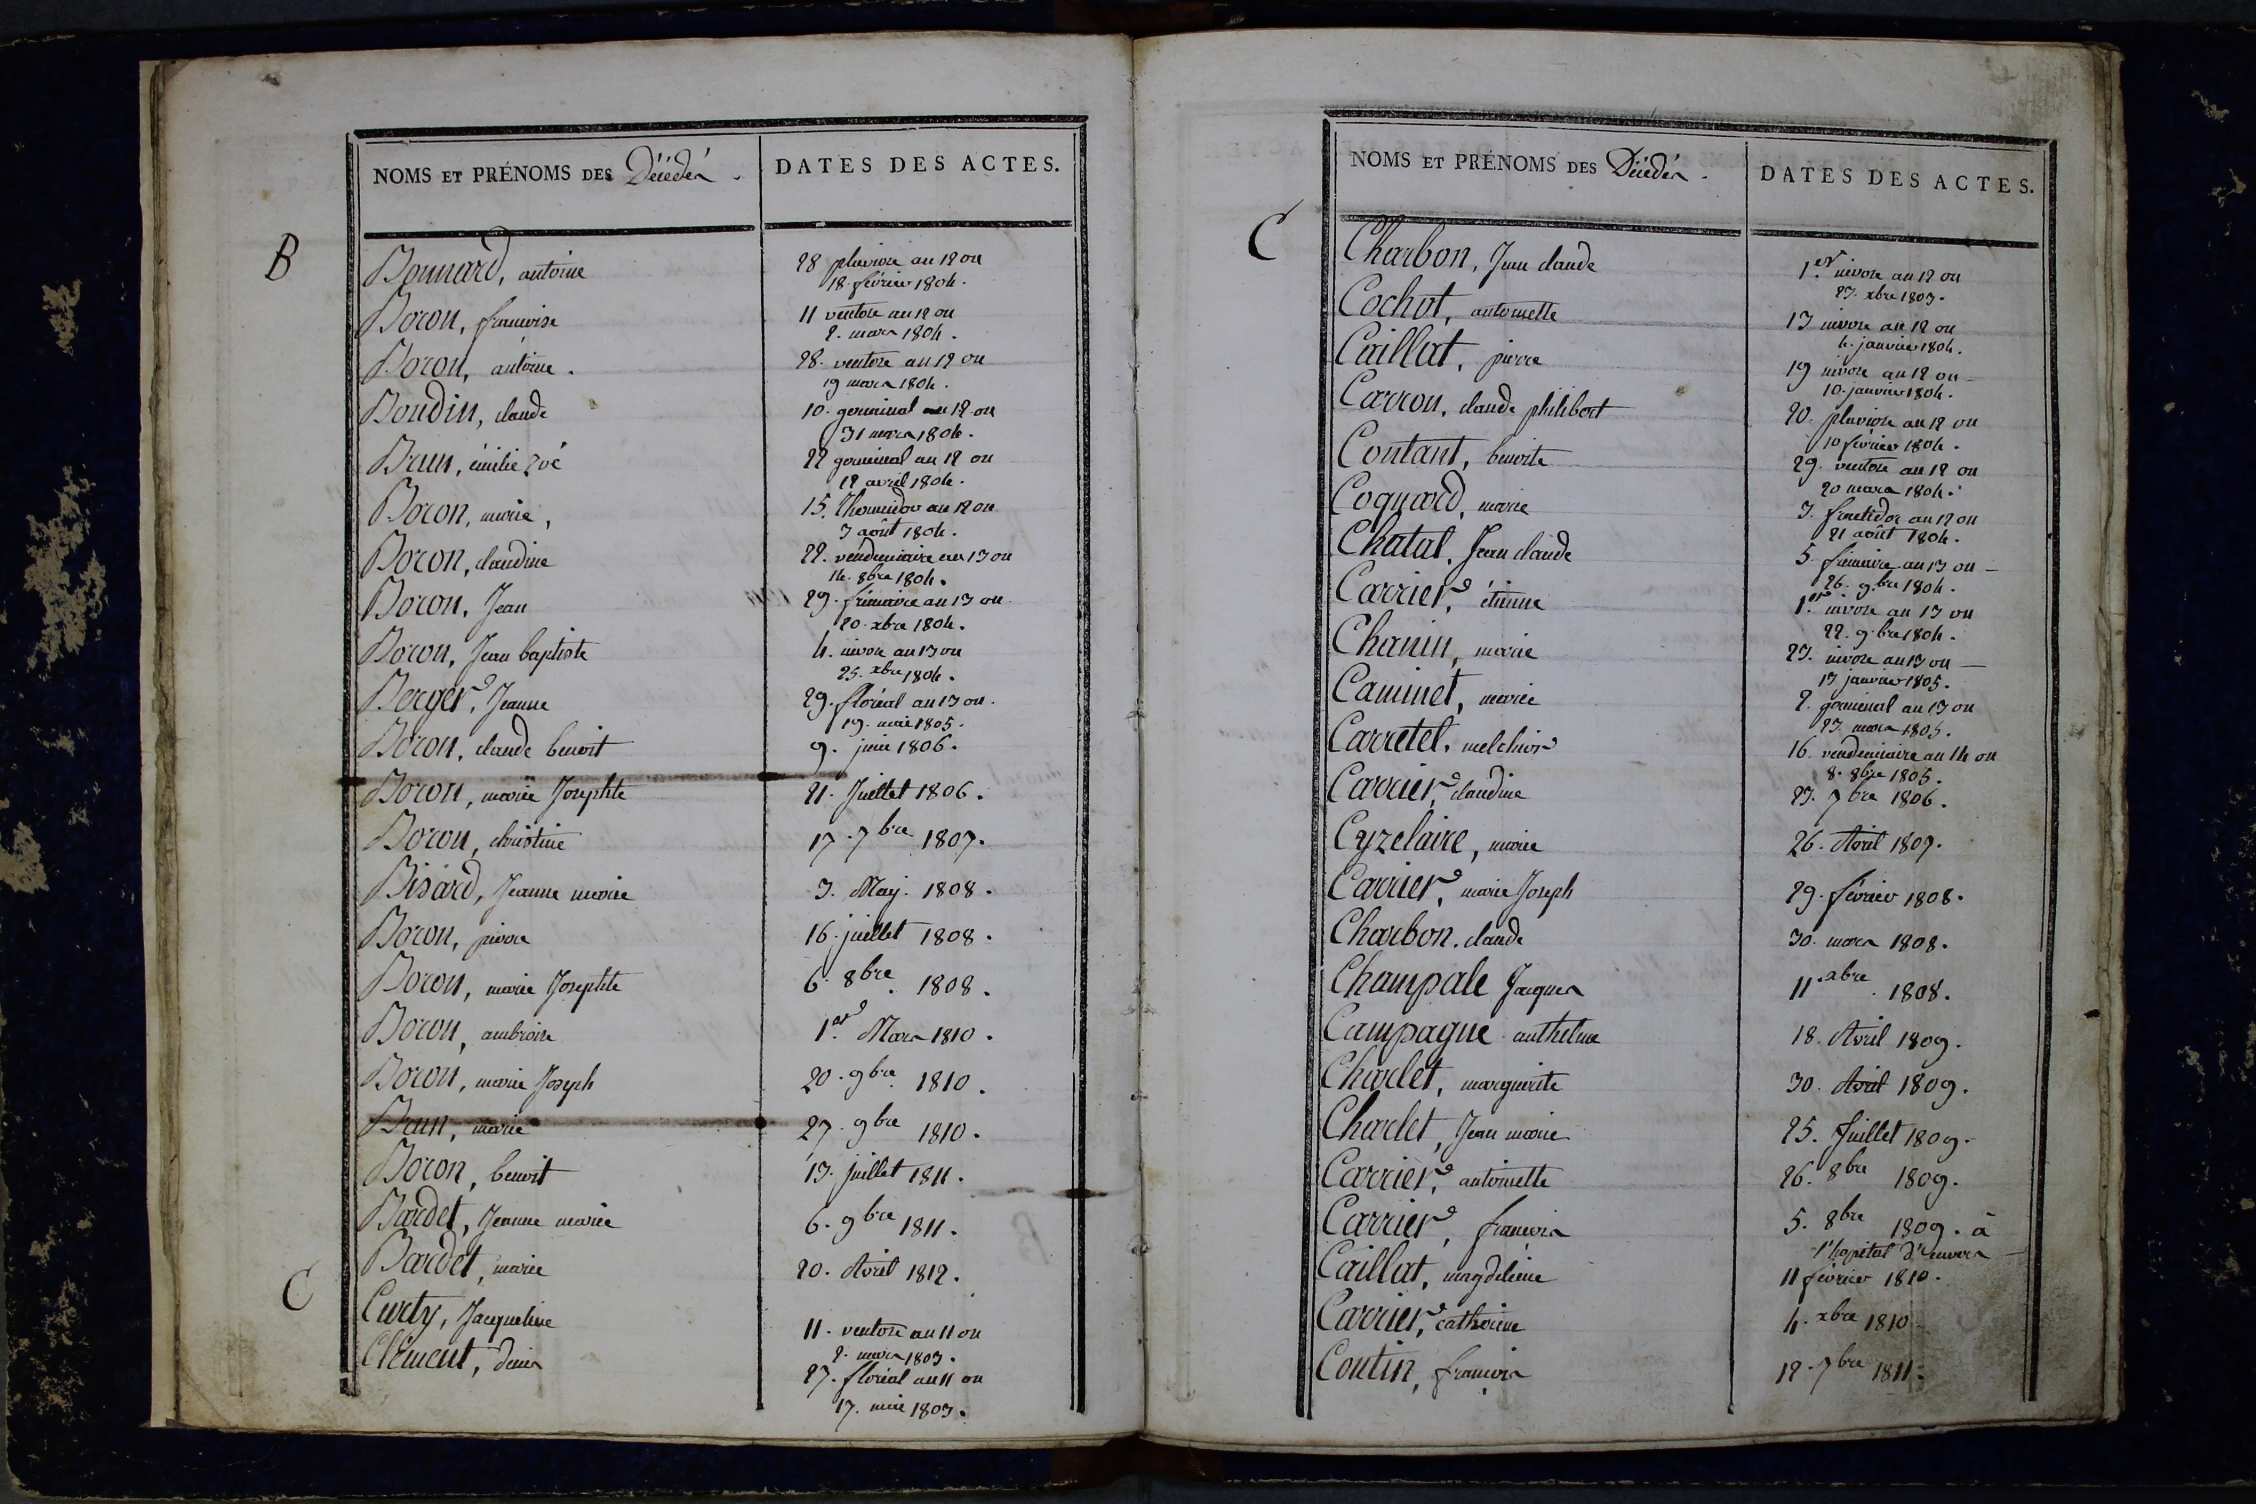 NOMS ET PRÉNOMS DES Décédés.
DATES DES ACTES.
B
Bonnard, antoine
28 pluviose an 12 ou
18. février 1804.
Boron, françoise
11 ventose an 12 ou
2. mars 1804.
Boron, antoine.
28. ventose an 12 ou
19 mars 1804.
Boudin, claude
10. germinal an 12 ou
31 mars 1804.
Brun, émilie Zoé
22 germinal an 12 ou
12 avril 1804.
Boron, marie,
15. thermidor an 12 ou
3 août 1804.
Boron, claudine
22. vendemiaire an 13 ou
14. 8bre 1804.
Boron, Jean
29. frimaire an 13 ou
20. xbre 1804.
Boron, Jean baptiste
4. nivose an 13 ou
25. xbre 1804.
Berger, Jeanne
29. floréal an 13 ou.
19. mai 1805.
Boron, claude benoit
9. juin 1806.
Boron, marie Josephte
21. Juillet 1806.
Boron, christine
17. 7bre 1807.
Bisard, Jeanne marie
3. May. 1808.
Boron, pierre
16. juillet 1808.
Boron, marie Josephte
6. 8bre. 1808.
Boron, ambroise
1er. Mars 1810.
Boron, marie Joseph
20. 9bre 1810.
Brun, marie
27. 9bre 1810.
Boron, benoit
13. juillet 1811.
Bardet, Jeanne marie
6. 9bre 1811.
Bardet, marie
20. Avril 1812.
C
Curty, Jacqueline
11. ventose an 11 ou
2. mars 1803.
Clément, denis
27. floréal an 11 ou
17. mai 1803.
NOMS ET PRÉNOMS DES Décédés.
DATES DES ACTES.
C
Charbon, Jean claude
1.er nivose an 12 ou
23. xbre 1803.
Cochot, antoinette
13 nivose an 12 ou
4. janvier 1804.
Caillat, pierre
19 nivose an 12 ou
10. janvier 1804.
Carron, claude philibert
20. pluviose an 12 ou
10 février 1804.
Contant, benoite
29. ventose an 12 ou
20 mars 1804.
Coquard, marie
3. fructidor an 12 ou
21 août 1804.
Chatal, Jean claude
5. frimaire an 13 ou
26. 9.bre 1804.
Carrier, étienne
1.er nivose an 13 ou
22. 9.bre 1804.
Chanin, marie
23. nivose an 13 ou
13 janvier 1805.
Caminet, marie
2. germinal an 13 ou
23. mars 1805.
Carretel, melchior
16. vendemiaire an 14 ou
8. 8bre 1805.
Carrier, claudine
23. 7bre 1806.
Cyzelaire, marie
26. Avril 1807.
Carrier, marie Joseph
29. février 1808.
Charbon. claude
30. mars 1808.
Champale Jacques
11 xbre 1808.
Campagne anthelme
18. Avril 1809.
Charlet, marguerite
30. Avril 1809.
Charlet, Jean marie
25. Juillet 1809.
Carrier, antoinette
26. 8bre 1809.
Carrier, françois
5. 8bre 1809. à
l'hopital d'
Caillat, magdeleine
11 février 1810.
Carrier, catherine
4. xbre 1810
Coutin, françois
12. 7bre 1811.